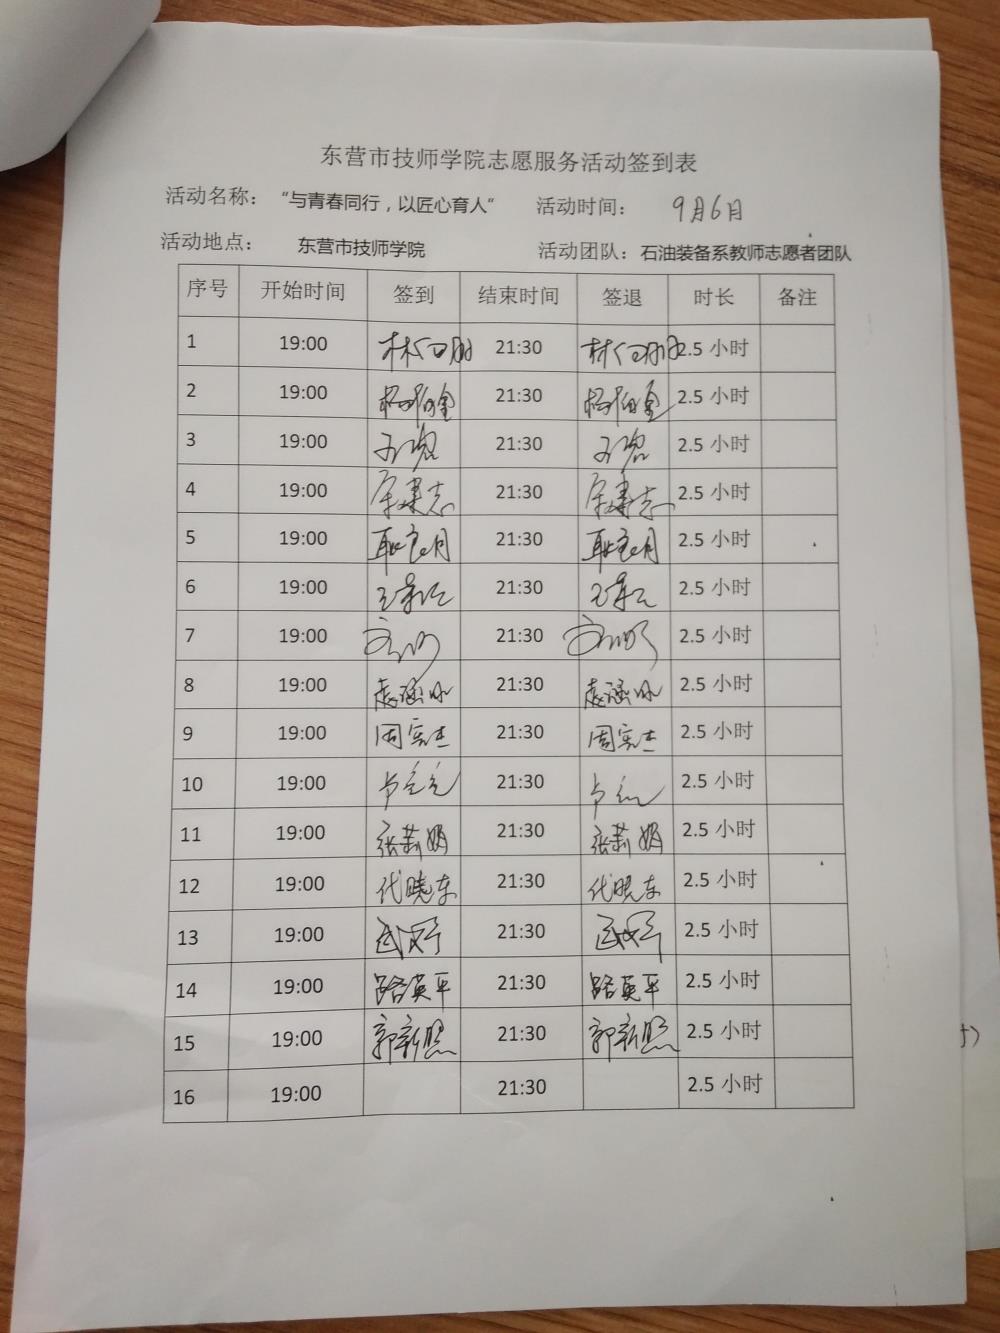 东营市技师学院志愿服务活动签到表
活动名称： “与青春同行，以匠心育人” 活动时间： 9月6日
活动地点： 东营市技师学院 活动团队：石油装备系教师志愿者团队
序号 开始时间 签到 结束时间 签退 时长 备注
1 19:00 21:30 2.5 小时
2 19:00 21:30 2.5 小时
3 19:00 21:30 2.5 小时
4 19:00 宋建志 21:30 宋建志 2.5 小时
5 19:00 耿良月 21:30 耿良月 2.5 小时
6 19:00 21:30 2.5 小时
7 19:00 21:30 2.5 小时
8 19:00 21:30 2.5 小时
9 19:00 周宪杰 21:30 周宪杰 2.5 小时
10 19:00 21:30 2.5 小时
11 19:00 张莉娟 21:30 张莉娟 2.5 小时
12 19:00 代晓东 21:30 代晓东 2.5 小时
13 19:00 21:30 2.5 小时
14 19:00 路英平 21:30 路英平 2.5 小时
15 19:00 郭新照 21:30 郭新照 2.5 小时
16 19:00 21:30 2.5 小时